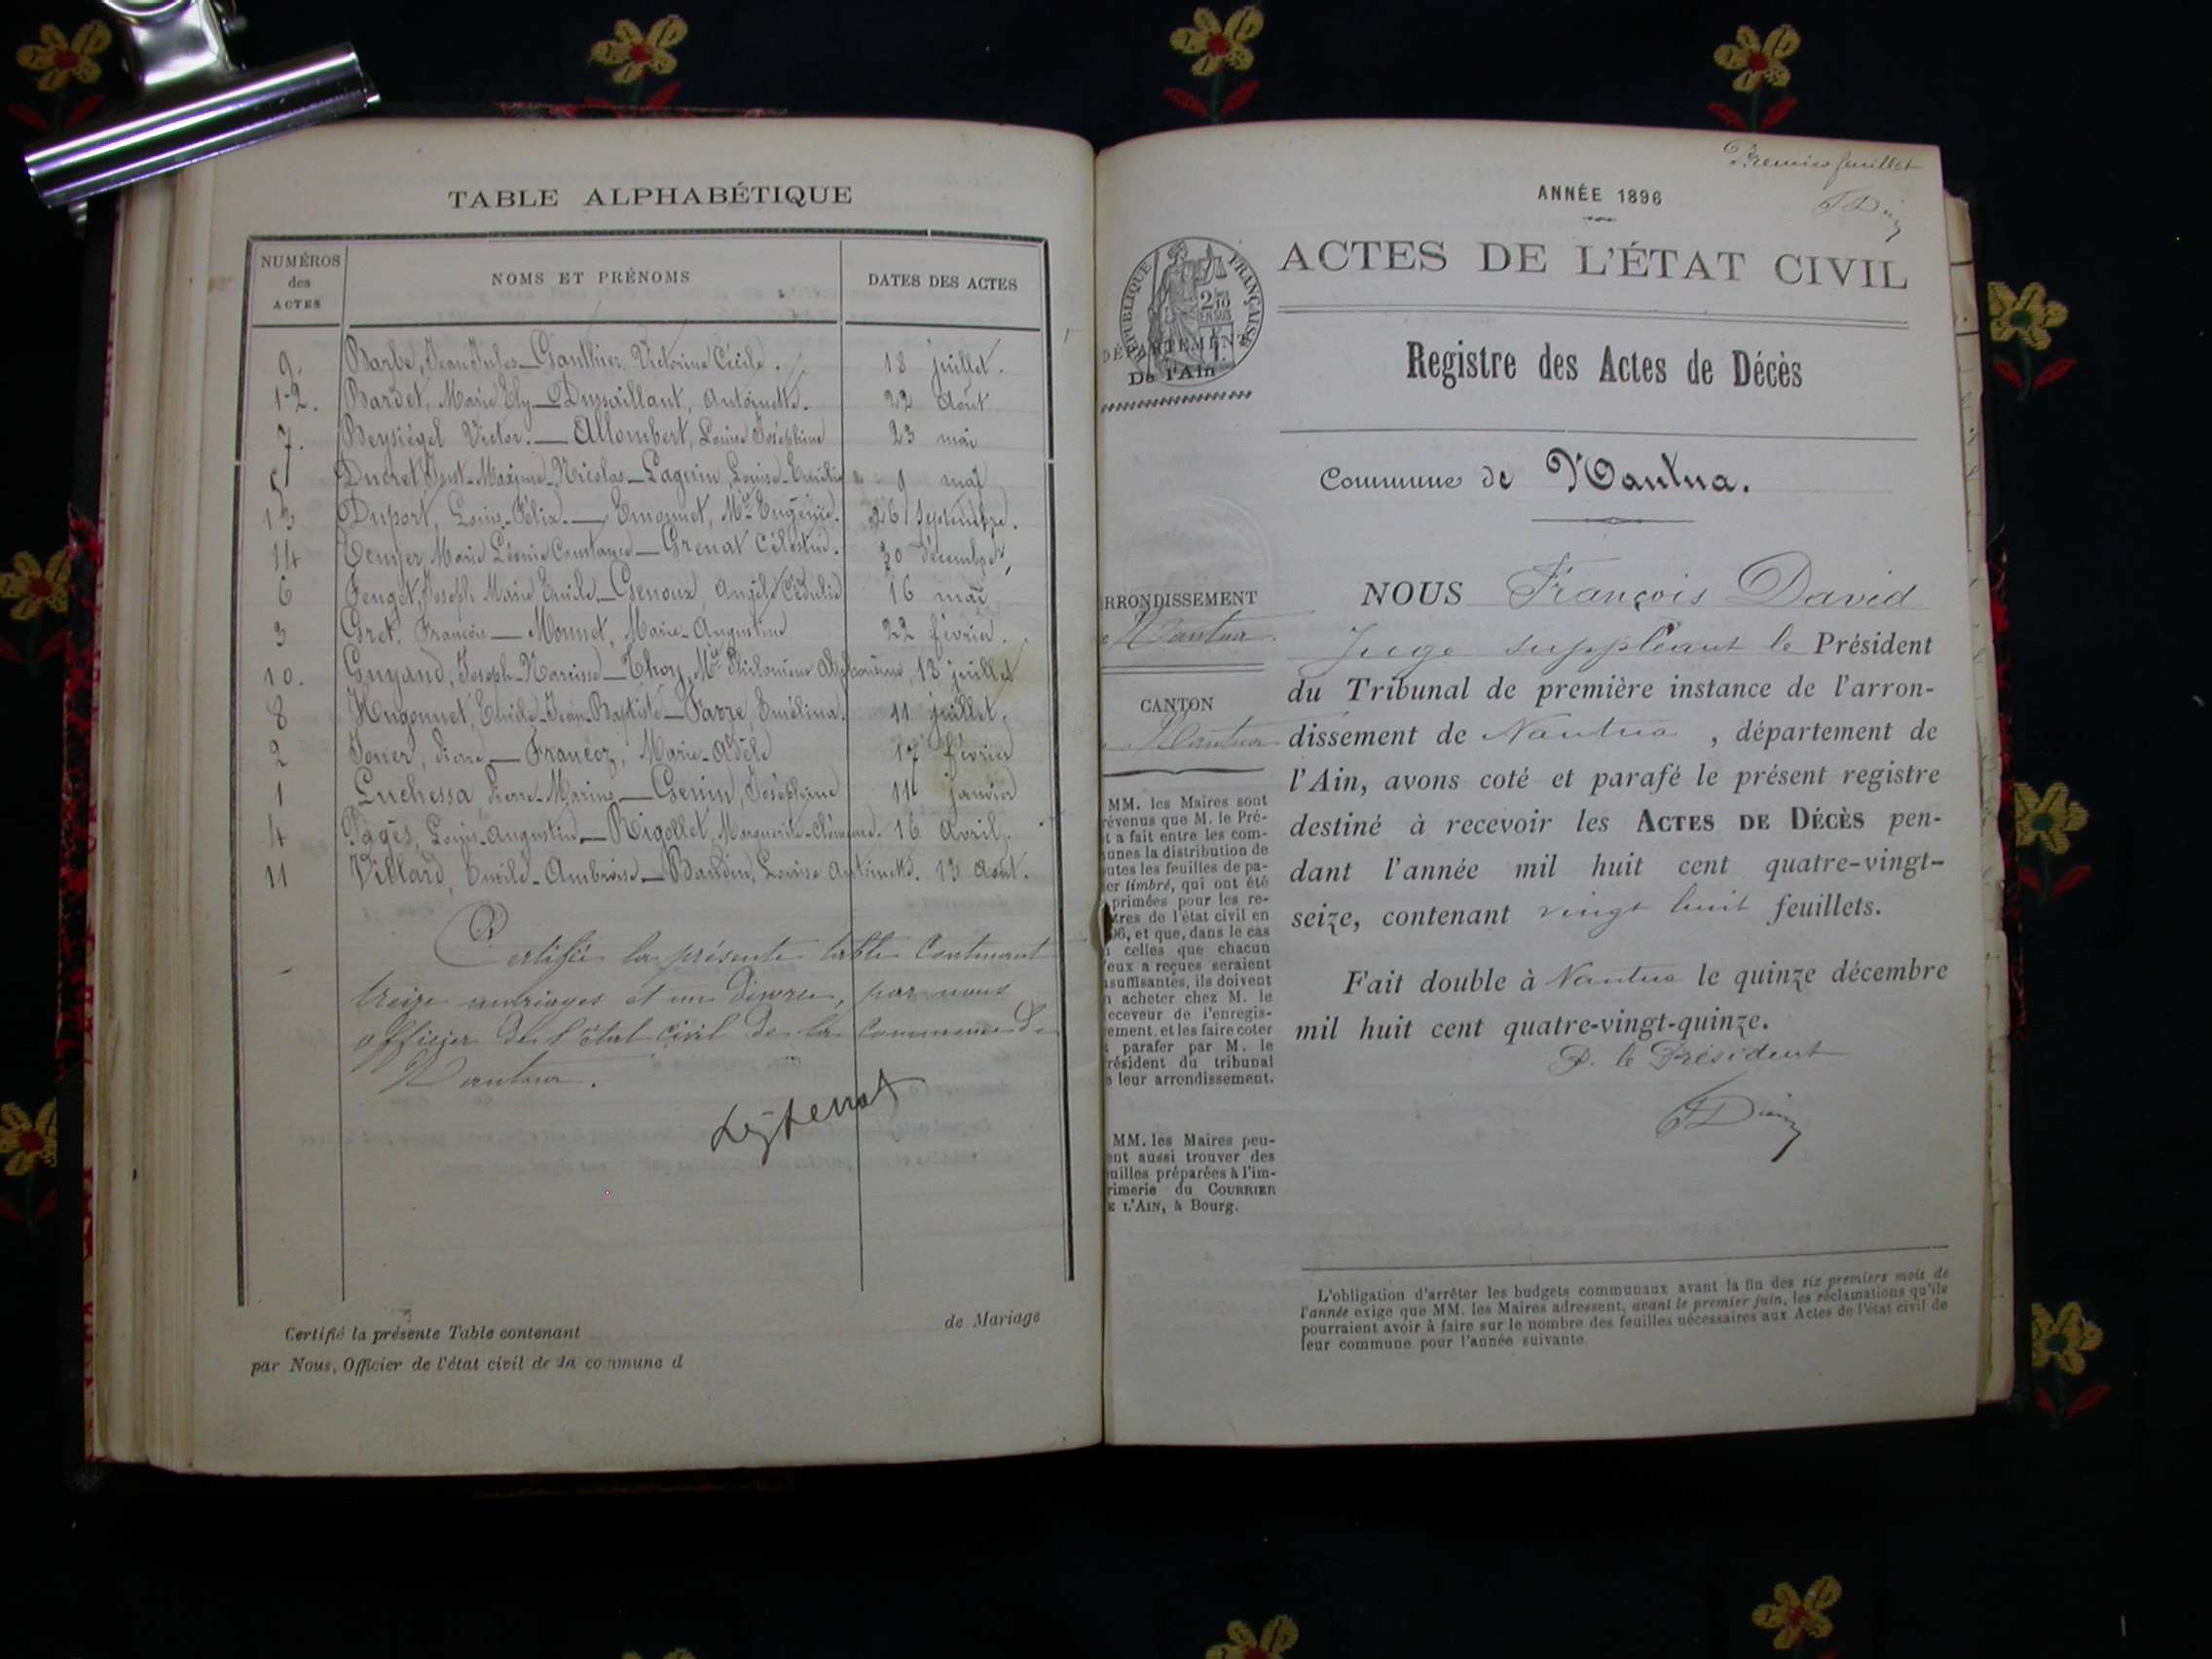 TABLE ALPHABÉTIQUE
NUMÉROS
des
ACTES
NOMS ET PRÉNOMS
DATES DES ACTES
9. Barbe, Jean Jules — Gauthier, Victorine Cécile. 18 juillet.
12. Bardet, Marie Ely — Dussaillant, Antoinette. 22 Août
7. Beysiégel Victor. — Allombert, Louise Joséphine 23 mai
5 Ducret Just-Maxime-Nicolas — Laguin, Louise-Emélie 9 mai
13 Duport, Louis-Félix. — Emonnet, Mie Eugénie. 26 Septembre.
14 Marie Léonie Constance — Grenat Célestin. 30 décembre
6 Fenget, Joseph Marie Emile — Genoux, Angèle 16 mai
3 Gret, François — Monnet, Marie-Augustine 22 février.
10. Guyand, Joseph-Narcisse — Thoy, Mie Philomène Alphonsine, 13 juillet
8 Hugonnet, Emile-Jean-Baptiste — Favre, Emélina. 11 juillet.
2 Joner, Pierre — Francoz, Marie-Adèle 17 février
1 Luchessa Pierre-Marius — Genin, Joséphine 11 janvier
4 Pagès, Louis-Augustin — Rigollet, Marguerite-Clémence. 16 Avril.
11 Villard, Emile-Ambroise — Baudin, Louise Antoinette. 13 Août.
Certifiée la présente table Contenant
treize mariages et un divorce, par nous
officier de l'état civil de la Commune de
Nantua.
Certifié la présente Table contenant
de Mariage
par Nous, Officier de l'état civil de la commune d
Premier feuillet
ANNÉE 1896
ACTES DE L'ÉTAT CIVIL
RÉPUBLIQUE FRANÇAISE
DÉPARTEMENT
De l'Ain
Registre des Actes de Décès
Commune de Nantua.
RRONDISSEMENT
Nantua
CANTON
Nantua
MM. les Maires sont
révenus que M. le Pré-
t a fait entre les com-
unes la distribution de
utes les feuilles de pa-
er timbré, qui ont été
primées pour les re-
tres de l'état civil en
96, et que, dans le cas
celles que chacun
eux a reçues seraient
suffisantes, ils doivent
acheter chez M. le
eceveur de l'enregis-
ement, et les faire coter
parafer par M. le
résident du tribunal
leur arrondissement.
MM. les Maires peu-
ent aussi trouver des
uilles préparées à l'im-
rimerie du COURRIER
E L'AIN, à Bourg.
NOUS François David
Juge suppléant le Président
du Tribunal de première instance de l'arron-
dissement de Nantua, département de
l'Ain, avons coté et parafé le présent registre
destiné à recevoir les ACTES DE DÉCÈS pen-
dant l'année mil huit cent quatre-vingt-
seize, contenant vingt huit feuillets.
Fait double à Nantua le quinze décembre
mil huit cent quatre-vingt-quinze.
P. le Président
L'obligation d'arrêter les budgets communaux avant la fin des six premiers mois de
l'année exige que MM. les Maires adressent, avant le premier juin, les réclamations qu'ils
pourraient avoir à faire sur le nombre des feuilles nécessaires aux Actes de l'état civil de
leur commune pour l'année suivante